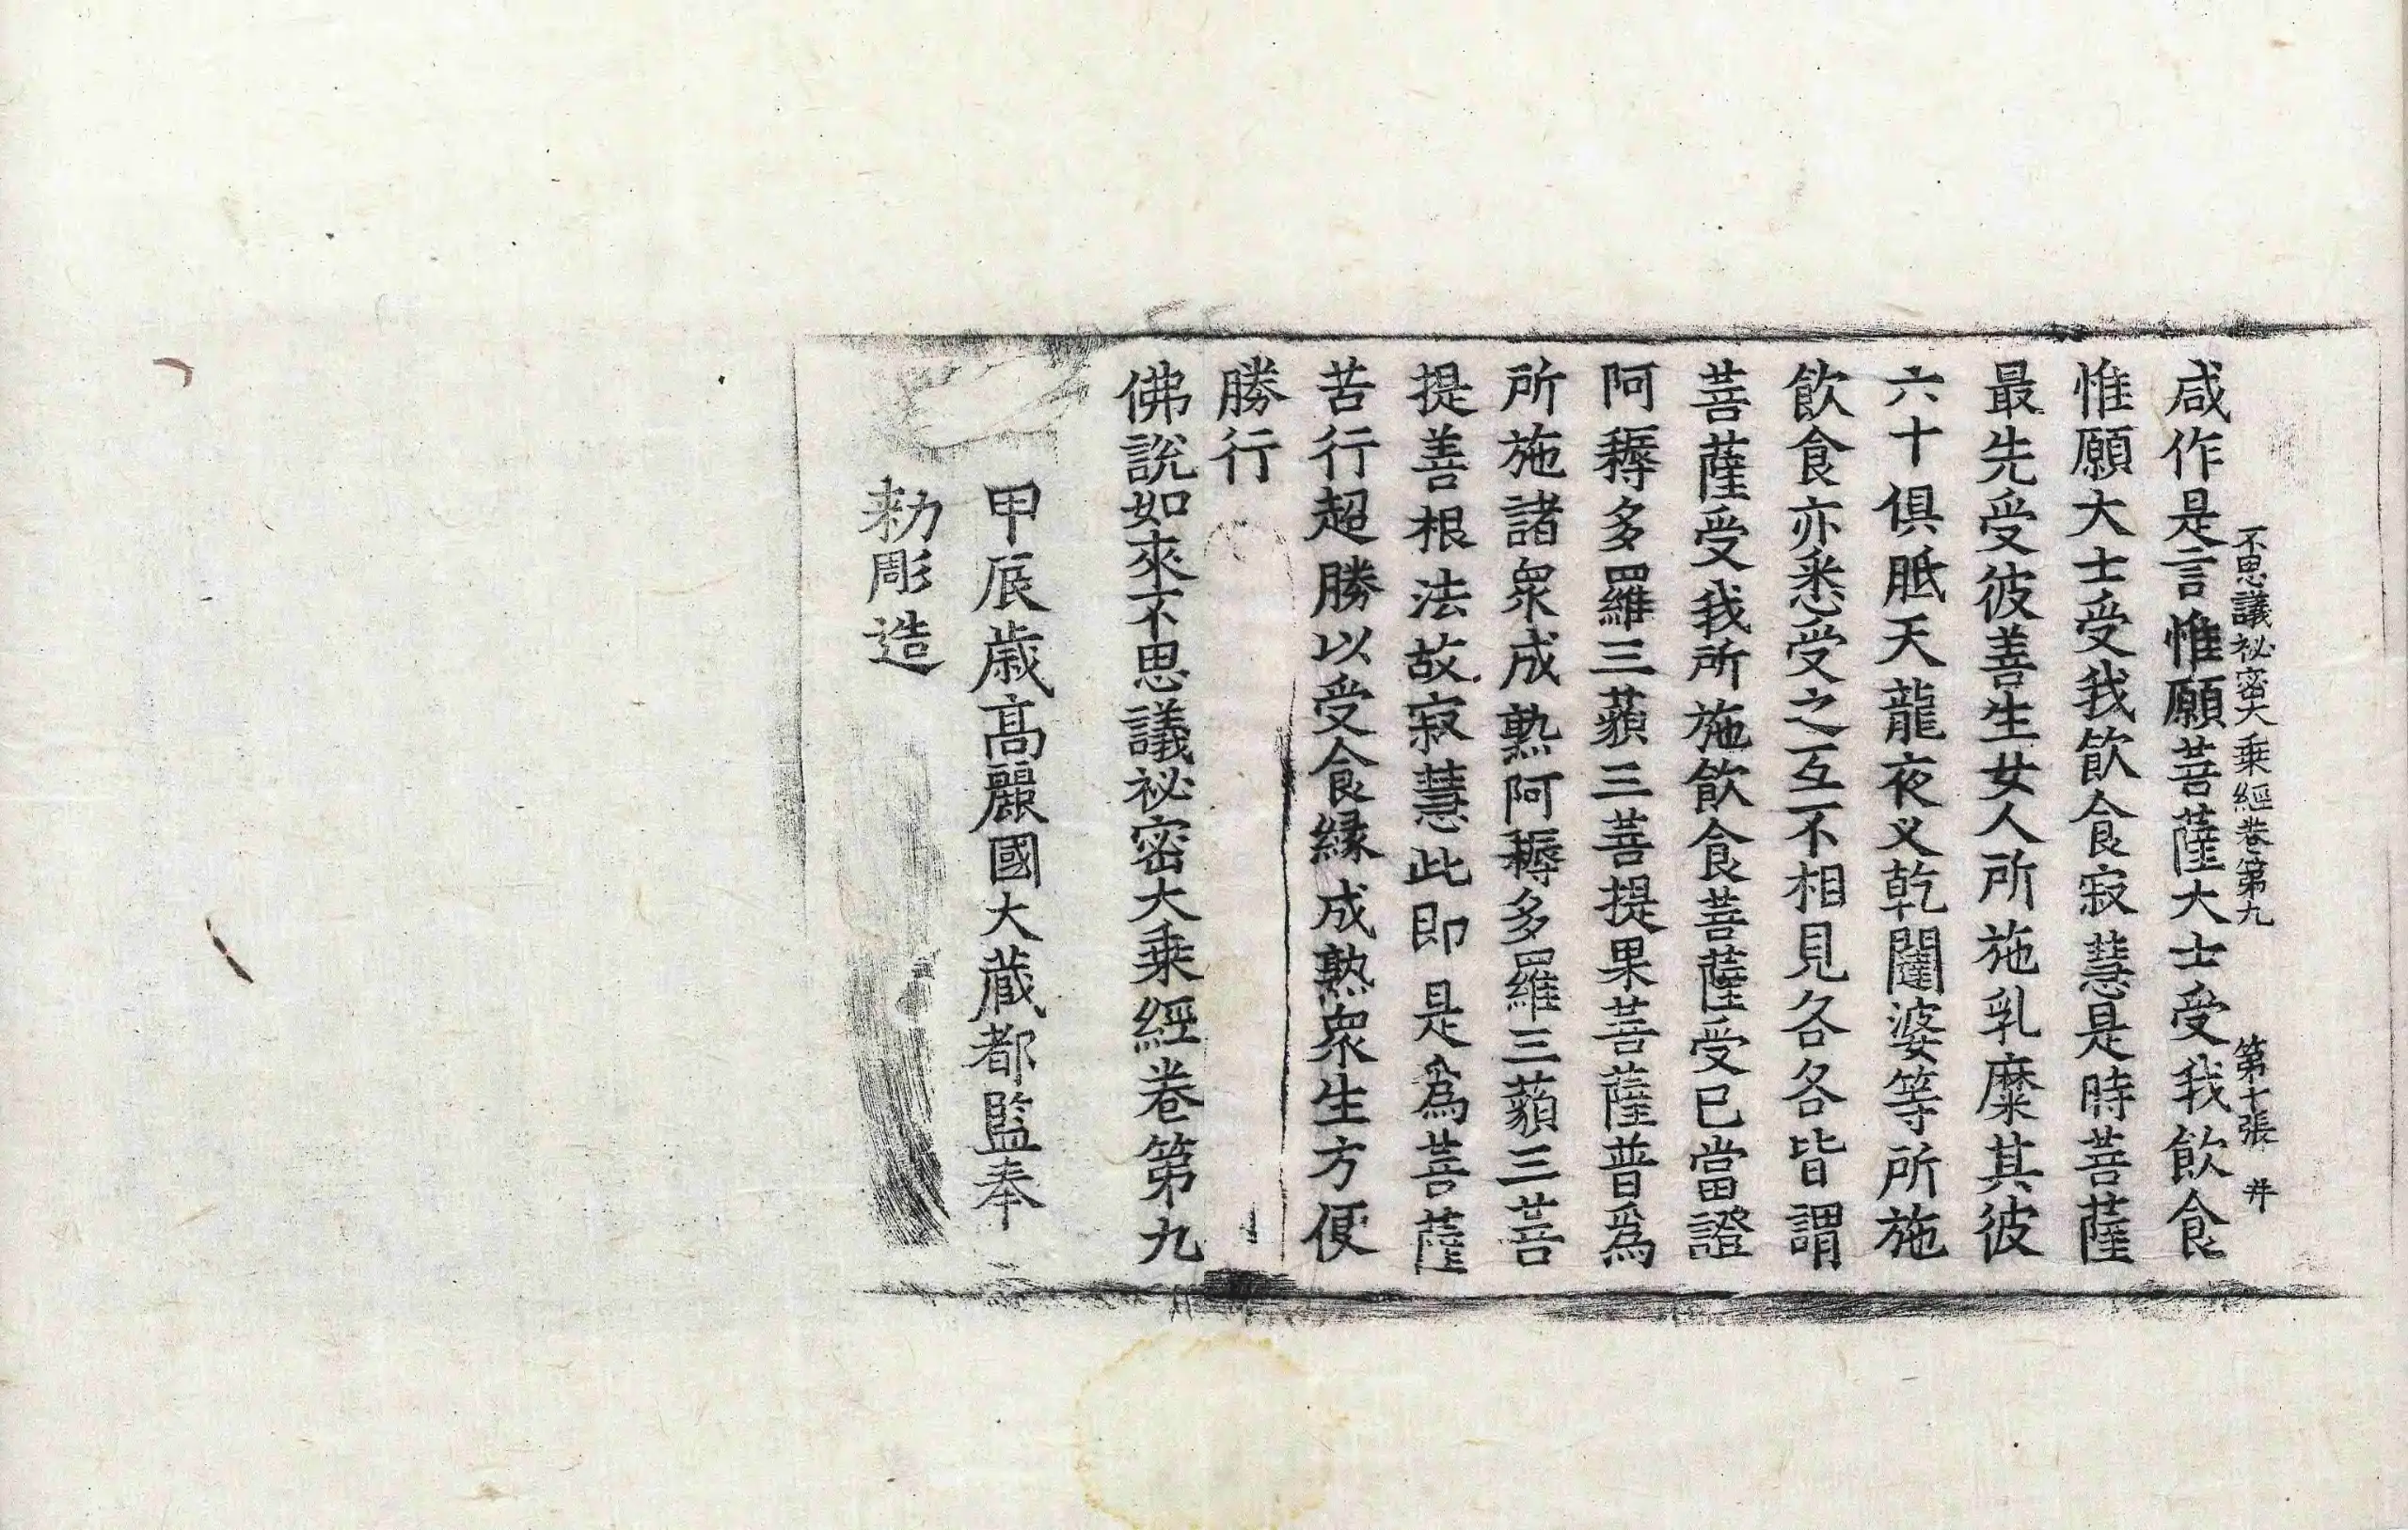 不思議祕密大乗經卷第九 第十張 井
咸作是言惟願菩薩大士受我飮食
惟願大士受我飮食寂慧是時菩薩
最先受彼善生女人所施乳糜其彼
六十俱胝天龍夜叉乾闥婆等所施
飮食亦悉受之互不相見各各皆謂
菩薩受我所施飮食菩薩受已當證
阿耨多羅三藐三菩提果菩薩普爲
所施諸衆成熟阿耨多羅三藐三菩
提善根法故寂慧此即是爲菩薩
苦行超勝以受食縁成熟衆生方便
勝行
佛說如來不思議祕密大乗經卷第九
甲辰歳高麗國大藏都監奉
勑彫造